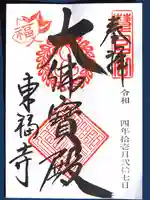 奉拝
令和
四年十壱月弐拾七日
大佛寳殿
東福寺
福